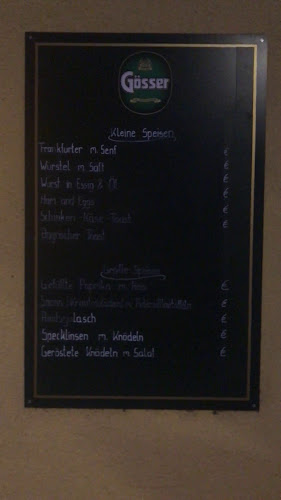 Gösser
Kleine Speisen
Frankfurter m. Senf €
Würstel m. Saft €
Wurst in Essig & Öl €
Ham and Eggs €
Schinken-Käse-Toast €
Bayrischer Toast
Große Speisen
Gefüllte Paprika m. Reis €
€
lasch €
Specklinsen m. Knödeln €
Geröstete Knödeln m. Salat €